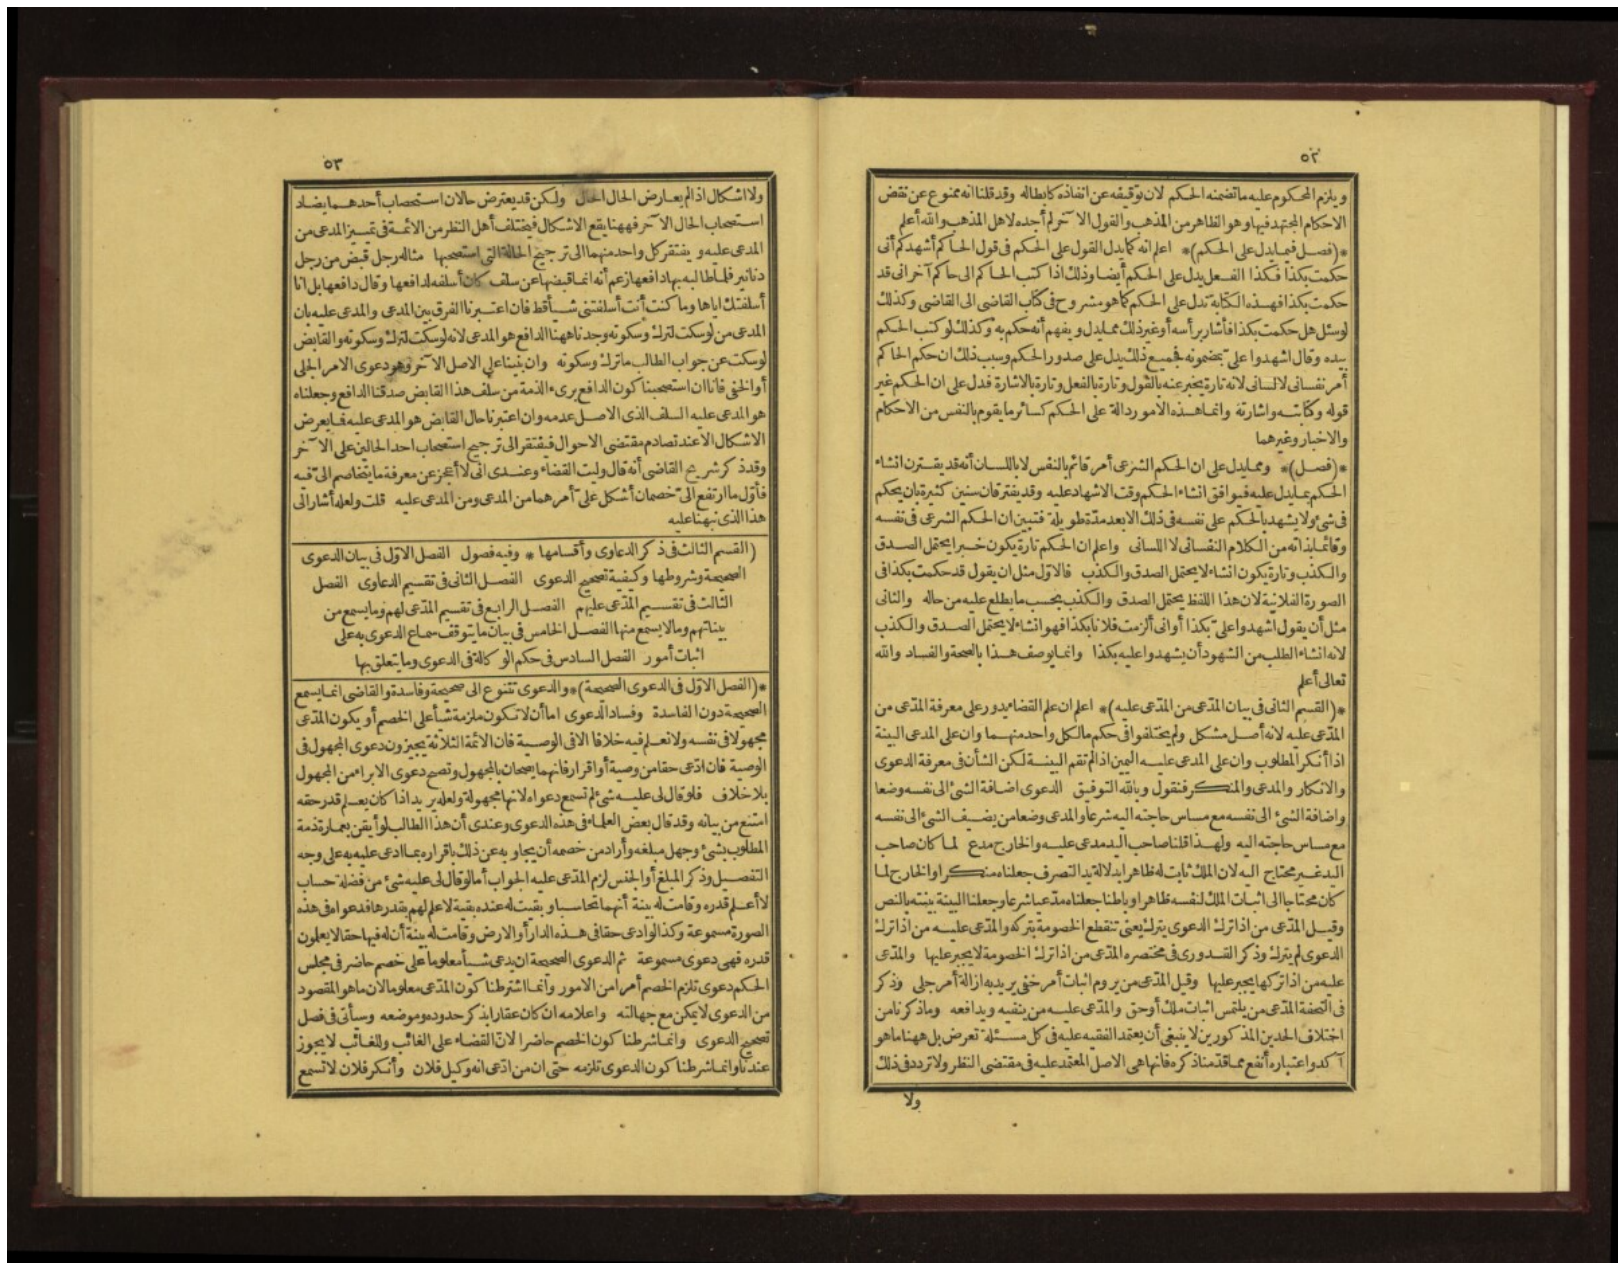 ٥٢
ويلزم المحكوم عليه ما تضمنه الحكم لان توقيفه عن انفاذه كابطاله وقد قلنا انه ممنوع عن نقض
الاحكام المجتهد فيها وهو الظاهر من المذهب والقول الآخر لم أجده لاهل المذهب والله أعلم
*(فصل فيما يدل على الحكم)* اعلم انه كما يدل القول على الحكم فى قول الحاكم أشهدكم أنى
حكمت بكذا فكذا الفعل يدل على الحكم أيضا وذلك اذا كتب الحاكم الى حاكم آخر انى قد
حكمت بكذا فهذه الكتابة تدل على الحكم كما هو مشروح فى كتاب القاضى الى القاضى وكذلك
لو سئل هل حكمت بكذا فأشار برأسه أو غير ذلك مما يدل ويفهم أنه حكم به وكذلك لو كتب الحكم
بيده وقال اشهدوا على بمضمونه فجميع ذلك يدل على صدور الحكم وسبب ذلك ان حكم الحاكم
أمر نفسانى لا لسانى لانه تارة يخبر عنه بالقول وتارة بالفعل وتارة بالاشارة فدل على ان الحكم غير
قوله وكتابته واشارته وانما هذه الامور دالة على الحكم كسائر ما يقوم بالنفس من الاحكام
والاخبار وغيرهما
*(فصل)* ومما يدل على ان الحكم الشرعى أمر قائم بالنفس لا باللسان أنه قد يقترن انشاء
الحكم بما يدل عليه فيوافق انشاء الحكم وقت الاشهاد عليه وقد يفترقان سنين كثيرة بان يحكم
فى شئ ولا يشهد بالحكم على نفسه فى ذلك الا بعد مدة طويلة فتبين ان الحكم الشرعى فى نفسه
وقائما بذاته من الكلام النفسانى لا اللسانى واعلم ان الحكم تارة يكون خبرا يحتمل الصدق
والكذب وتارة يكون انشاء لا يحتمل الصدق والكذب فالاول مثل ان يقول قد حكمت بكذا فى
الصورة الفلانية لان هذا اللفظ يحتمل الصدق والكذب بحسب ما يطلع عليه من حاله والثانى
مثل أن يقول اشهدوا على بكذا أو انى ألزمت فلانا بكذا فهو انشاء لا يحتمل الصدق والكذب
لانه انشاء الطلب من الشهود أن يشهدوا عليه بكذا وانما يوصف هذا بالصحة والفساد والله
تعالى أعلم
*(القسم الثانى فى بيان المدّعى من المدّعى عليه)* اعلم ان علم القضاء يدور على معرفة المدّعى من
المدّعى عليه لانه أصل مشكل ولم يختلفوا فى حكم ما لكل واحد منهما وان على المدعى البينة
اذا أنكر المطلوب وان على المدعى عليه اليمين اذا لم تقم البينة لكن الشأن فى معرفة الدعوى
والانكار والمدعى والمنكر فنقول وبالله التوفيق الدعوى اضافة الشئ الى نفسه وضعا
واضافة الشئ الى نفسه مع مساس حاجته اليه شرعا والمدعى وضعا من يضيف الشئ الى نفسه
مع مساس حاجته اليه ولهذا قلنا صاحب اليد مدعى عليه والخارج مدع لما كان صاحب
اليد غير محتاج اليه لان الملك ثابت له ظاهرا بدلالة يد التصرف جعلناه منكرا والخارج لما
كان محتاجا الى اثبات الملك لنفسه ظاهرا وباطنا جعلناه مدّعيا شرعا وجعلنا البينة بينته بالنص
وقيل المدّعى من اذا ترك الدعوى يترك يعنى تنقطع الخصومة بتركه والمدّعى عليه من اذا ترك
الدعوى لم يترك وذكر القدورى فى مختصره المدّعى من اذا ترك الخصومة لا يجبر عليها والمدّعى
عليه من اذا تركها يجبر عليها وقيل المدّعى من يروم اثبات أمر خفى يريد به ازالة أمر جلى وذكر
فى التحفة المدّعى من يلتمس اثبات ملك أو حق والمدّعى عليه من ينفيه ويدافعه وما ذكرنا من
اختلاف الحدين المذكورين لا ينبغى أن يعتمد الفقيه عليه فى كل مسئلة تعرض بل ههنا ما هو
آكد واعتباره أنفع مما قدمنا ذكره فانها هى الاصل المعتمد عليه فى مقتضى النظر ولا تردد فى ذلك
ولا
٥٣
ولا اشكال اذا لم يعارض الحال الحال ولكن قد يعترض حالان استصحاب أحدهما يضاد
استصحاب الحال الآخر فههنا يقع الاشكال فيختلف أهل النظر من الائمة فى تمييز المدعى من
المدعى عليه ويفتقر كل واحد منهما الى ترجيح الحالة التى استصحبها مثاله رجل قبض من رجل
دنانير فلما طالبه بها دافعها زعم أنه انما قبضها عن سلف كان أسلفه لدافعها وقال دافعها بل انا
أسلفتك اياها وما كنت أنت أسلفتنى شيأ قط فان اعتبرنا الفرق بين المدعى والمدعى عليه بان
المدعى من لو سكت لترك وسكوته وجدنا ههنا الدافع هو المدعى لانه لو سكت لترك وسكوته والقابض
لو سكت عن جواب الطالب ما ترك وسكوته وان بنينا على الاصل الآخر وهو دعوى الامر الجلى
أو الخفى فانا ان استصحبنا كون الدافع برىء الذمة من سلف هذا القابض صدقنا الدافع وجعلناه
هو المدعى عليه السلف الذى الاصل عدمه وان اعتبرنا حال القابض هو المدعى عليه فما يعرض
الاشكال الا عند تصادم مقتضى الاحوال فيفتقر الى ترجيح استصحاب احد الحالين على الآخر
وقد ذكر شريح القاضى أنه قال وليت القضاء وعندى انى لا أعجز عن معرفة ما يتخاصم الىّ فيه
فأوّل ما ارتفع الىّ خصمان أشكل علىّ أمرهما من المدعى ومن المدعى عليه قلت ولعله أشار الى
هذا الذى نبهنا عليه
(القسم الثالث فى ذكر الدعاوى وأقسامها * وفيه فصول الفصل الاوّل فى بيان الدعوى
الصحيحة وشروطها وكيفية تصحيح الدعوى الفصل الثانى فى تقسيم الدعاوى الفصل
الثالث فى تقسيم المدّعى عليهم الفصل الرابع فى تقسيم المدّعى لهم وما يسمع من
بيناتهم وما لا يسمع منها الفصل الخامس فى بيان ما يتوقف سماع الدعوى به على
اثبات أمور الفصل السادس فى حكم الوكالة فى الدعوى وما يتعلق بها
*(الفصل الاوّل فى الدعوى الصحيحة)* والدعوى تتنوع الى صحيحة وفاسدة والقاضى انما يسمع
الصحيحة دون الفاسدة وفساد الدعوى اما أن لا تكون ملزمة شيأ على الخصم أو يكون المدّعى
مجهولا فى نفسه ولا نعلم فيه خلافا الا فى الوصية فان الائمة الثلاثة يجيزون دعوى المجهول فى
الوصية فان ادّعى حقا من وصية أو اقرار فانهما يصحان بالمجهول وتصح دعوى الابراء من المجهول
بلا خلاف فلو قال لى عليه شئ لم تسمع دعواه لانها مجهولة ولعله يريد اذا كان يعلم قدر حقه
امتنع من بيانه وقد قال بعض العلماء فى هذه الدعوى وعندى أن هذا الطالب لو أيقن بعمارة ذمة
المطلوب بشئ وجهل مبلغه وأراد من خصمه أن يجاوبه عن ذلك باقراره بما ادعى عليه به على وجه
التفصيل وذكر المبلغ أو الجنس لزم المدّعى عليه الجواب أما لو قال لى عليه شئ من فضلة حساب
لا أعلم قدره وقامت له بينة أنهما تحاسبا وبقيت له عنده بقية لا علم لهم بقدرها فدعواه فى هذه
الصورة مسموعة وكذا لو ادعى حقا فى هذه الدار أو الارض وقامت له بينة أن له فيها حقا لا يعلمون
قدره فهى دعوى مسموعة ثم الدعوى الصحيحة ان يدعى شيأ معلوما على خصم حاضر فى مجلس
الحكم دعوى تلزم الخصم أمرا من الامور وانما اشترطنا كون المدّعى معلوما لان ما هو المقصود
من الدعوى لا يمكن مع جهالته واعلامه ان كان عقارا بذكر حدوده وموضعه وسيأتى فى فصل
تصحيح الدعوى وانما شرطنا كون الخصم حاضرا لانّ القضاء على الغائب وللغائب لا يجوز
عندنا وانما شرطنا كون الدعوى تلزمه حتى ان من ادّعى انه وكيل فلان وأنكر فلان لا تسمع